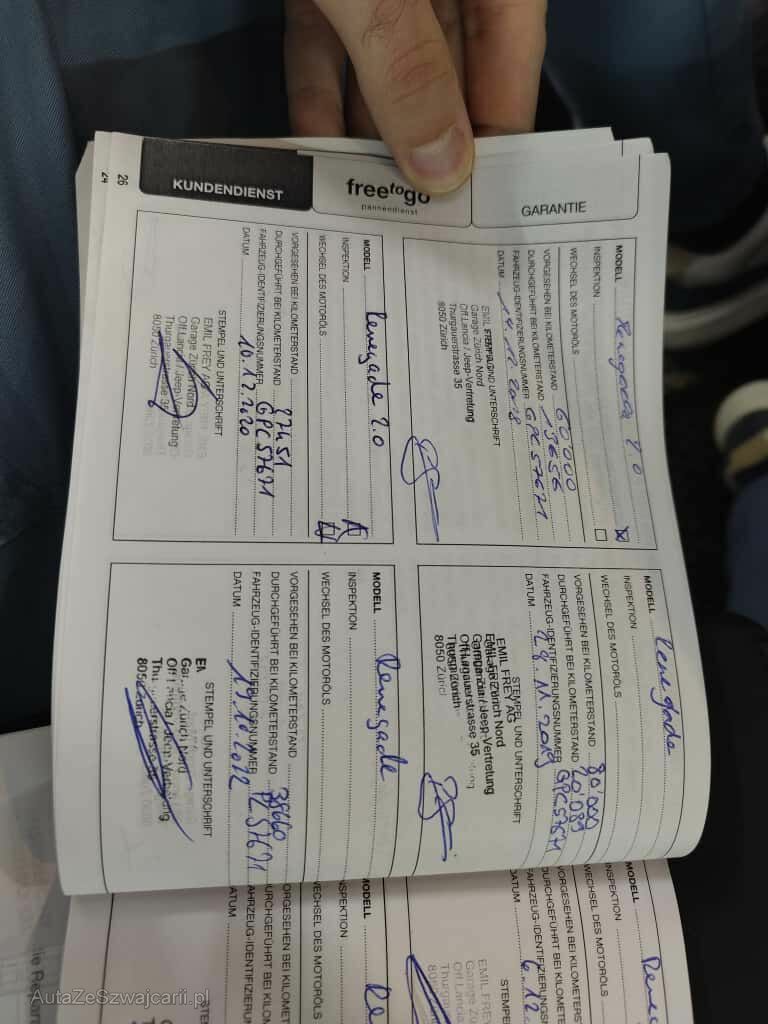 KUNDENDIENST
free to go
pannendienst
GARANTIE
26
24
MODELL Renegade 2.0
INSPEKTION
WECHSEL DES MOTORÖLS
VORGESEHEN BEI KILOMETERSTAND 60'000
DURCHGEFÜHRT BEI KILOMETERSTAND 13656
FAHRZEUG-IDENTIFIZIERUNGSNUMMER GPC57671
DATUM 2018
STEMPEL UND UNTERSCHRIFT
EMIL FREY AG
Garage Zürich Nord
Off.Lancia / Jeep-Vertretung
Thurgauerstrasse 35
8050 Zürich
MODELL Renegade
INSPEKTION
WECHSEL DES MOTORÖLS
VORGESEHEN BEI KILOMETERSTAND 80'000
DURCHGEFÜHRT BEI KILOMETERSTAND 20'089
FAHRZEUG-IDENTIFIZIERUNGSNUMMER GPC57671
DATUM 28.11.2019
STEMPEL UND UNTERSCHRIFT
EMIL FREY AG
Garage Zürich Nord
Off. Lancia / Jeep-Vertretung
Thurgauerstrasse 35
8050 Zürich
MODELL Renegade 2.0
INSPEKTION
WECHSEL DES MOTORÖLS
VORGESEHEN BEI KILOMETERSTAND
DURCHGEFÜHRT BEI KILOMETERSTAND 27451
FAHRZEUG-IDENTIFIZIERUNGSNUMMER GPC57671
DATUM 10.12.2020
STEMPEL UND UNTERSCHRIFT
EMIL FREY AG
Garage Zürich Nord
Off.Lancia / Jeep-Vertretung
Thurgauerstrasse 35
8050 Zürich
MODELL Renegade
INSPEKTION
WECHSEL DES MOTORÖLS
VORGESEHEN BEI KILOMETERSTAND
DURCHGEFÜHRT BEI KILOMETERSTAND 38660
FAHRZEUG-IDENTIFIZIERUNGSNUMMER 57671
DATUM 19.10.2022
STEMPEL UND UNTERSCHRIFT
Garage Zürich Nord
Off Lancia / Jeep-Vertretung
8050 Zürich
MODELL Rene
INSPEKTION
WECHSEL DES MOTORÖLS
VORGESEHEN BEI KILO
DURCHGEFÜHRT BEI KI
FAHRZEUG-IDENTIFIZI
DATUM 6.12
STEMPE
EMIL FREY
Garage Zü
Off.Lancia
MODELL Re
INSPEKTION
WECHSEL DES MOTORÖL
VORGESEHEN BEI KILO
DURCHGEFÜHRT BEI KI
FAHRZEUG-IDENTIFIZ
ATUM
STE
AutaZeSzwajcarii.pl